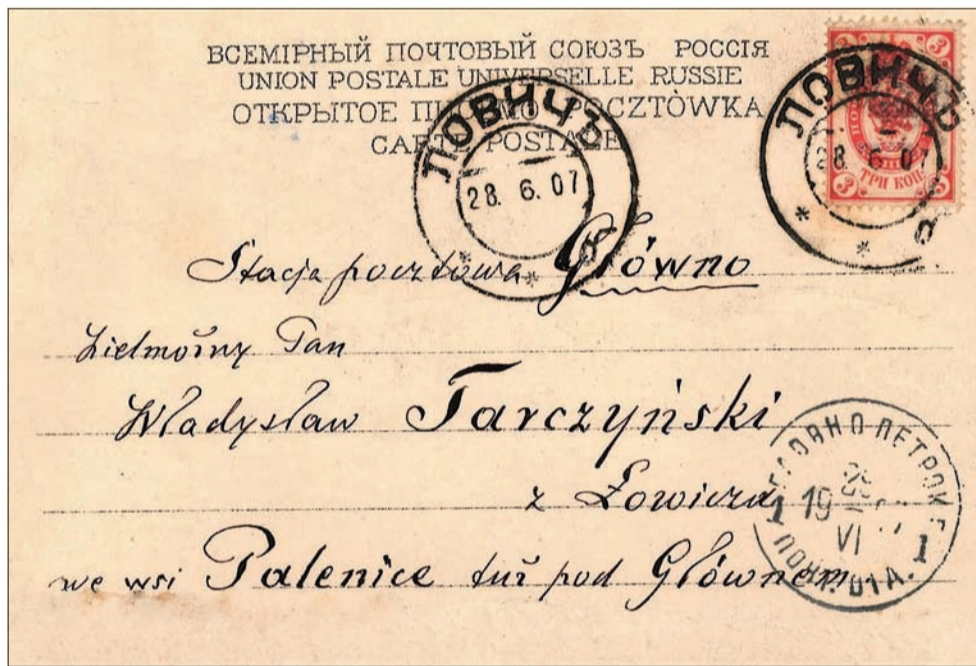 ВСЕМІРНЫЙ ПОЧТОВЫЙ СОЮЗЪ РОССІЯ
UNION POSTALE UNIVERSELLE RUSSIE
ОТКРЫТОЕ ПИСЬМО POCZTÒWKA
CARTE POSTALE
ЛОВИЧЪ
28. 6. 07
ЛОВИЧЪ
28. 6. 07
3 3
ТРИ КОП.
3 3
Stacja pocztowa Główno
Wielmożny Pan
Władysław Tarczyński
z Łowicza
we wsi Palenice tuż pod Głównem
ГЛОВНО ПЕТРОК Г.
1 19 VI 1